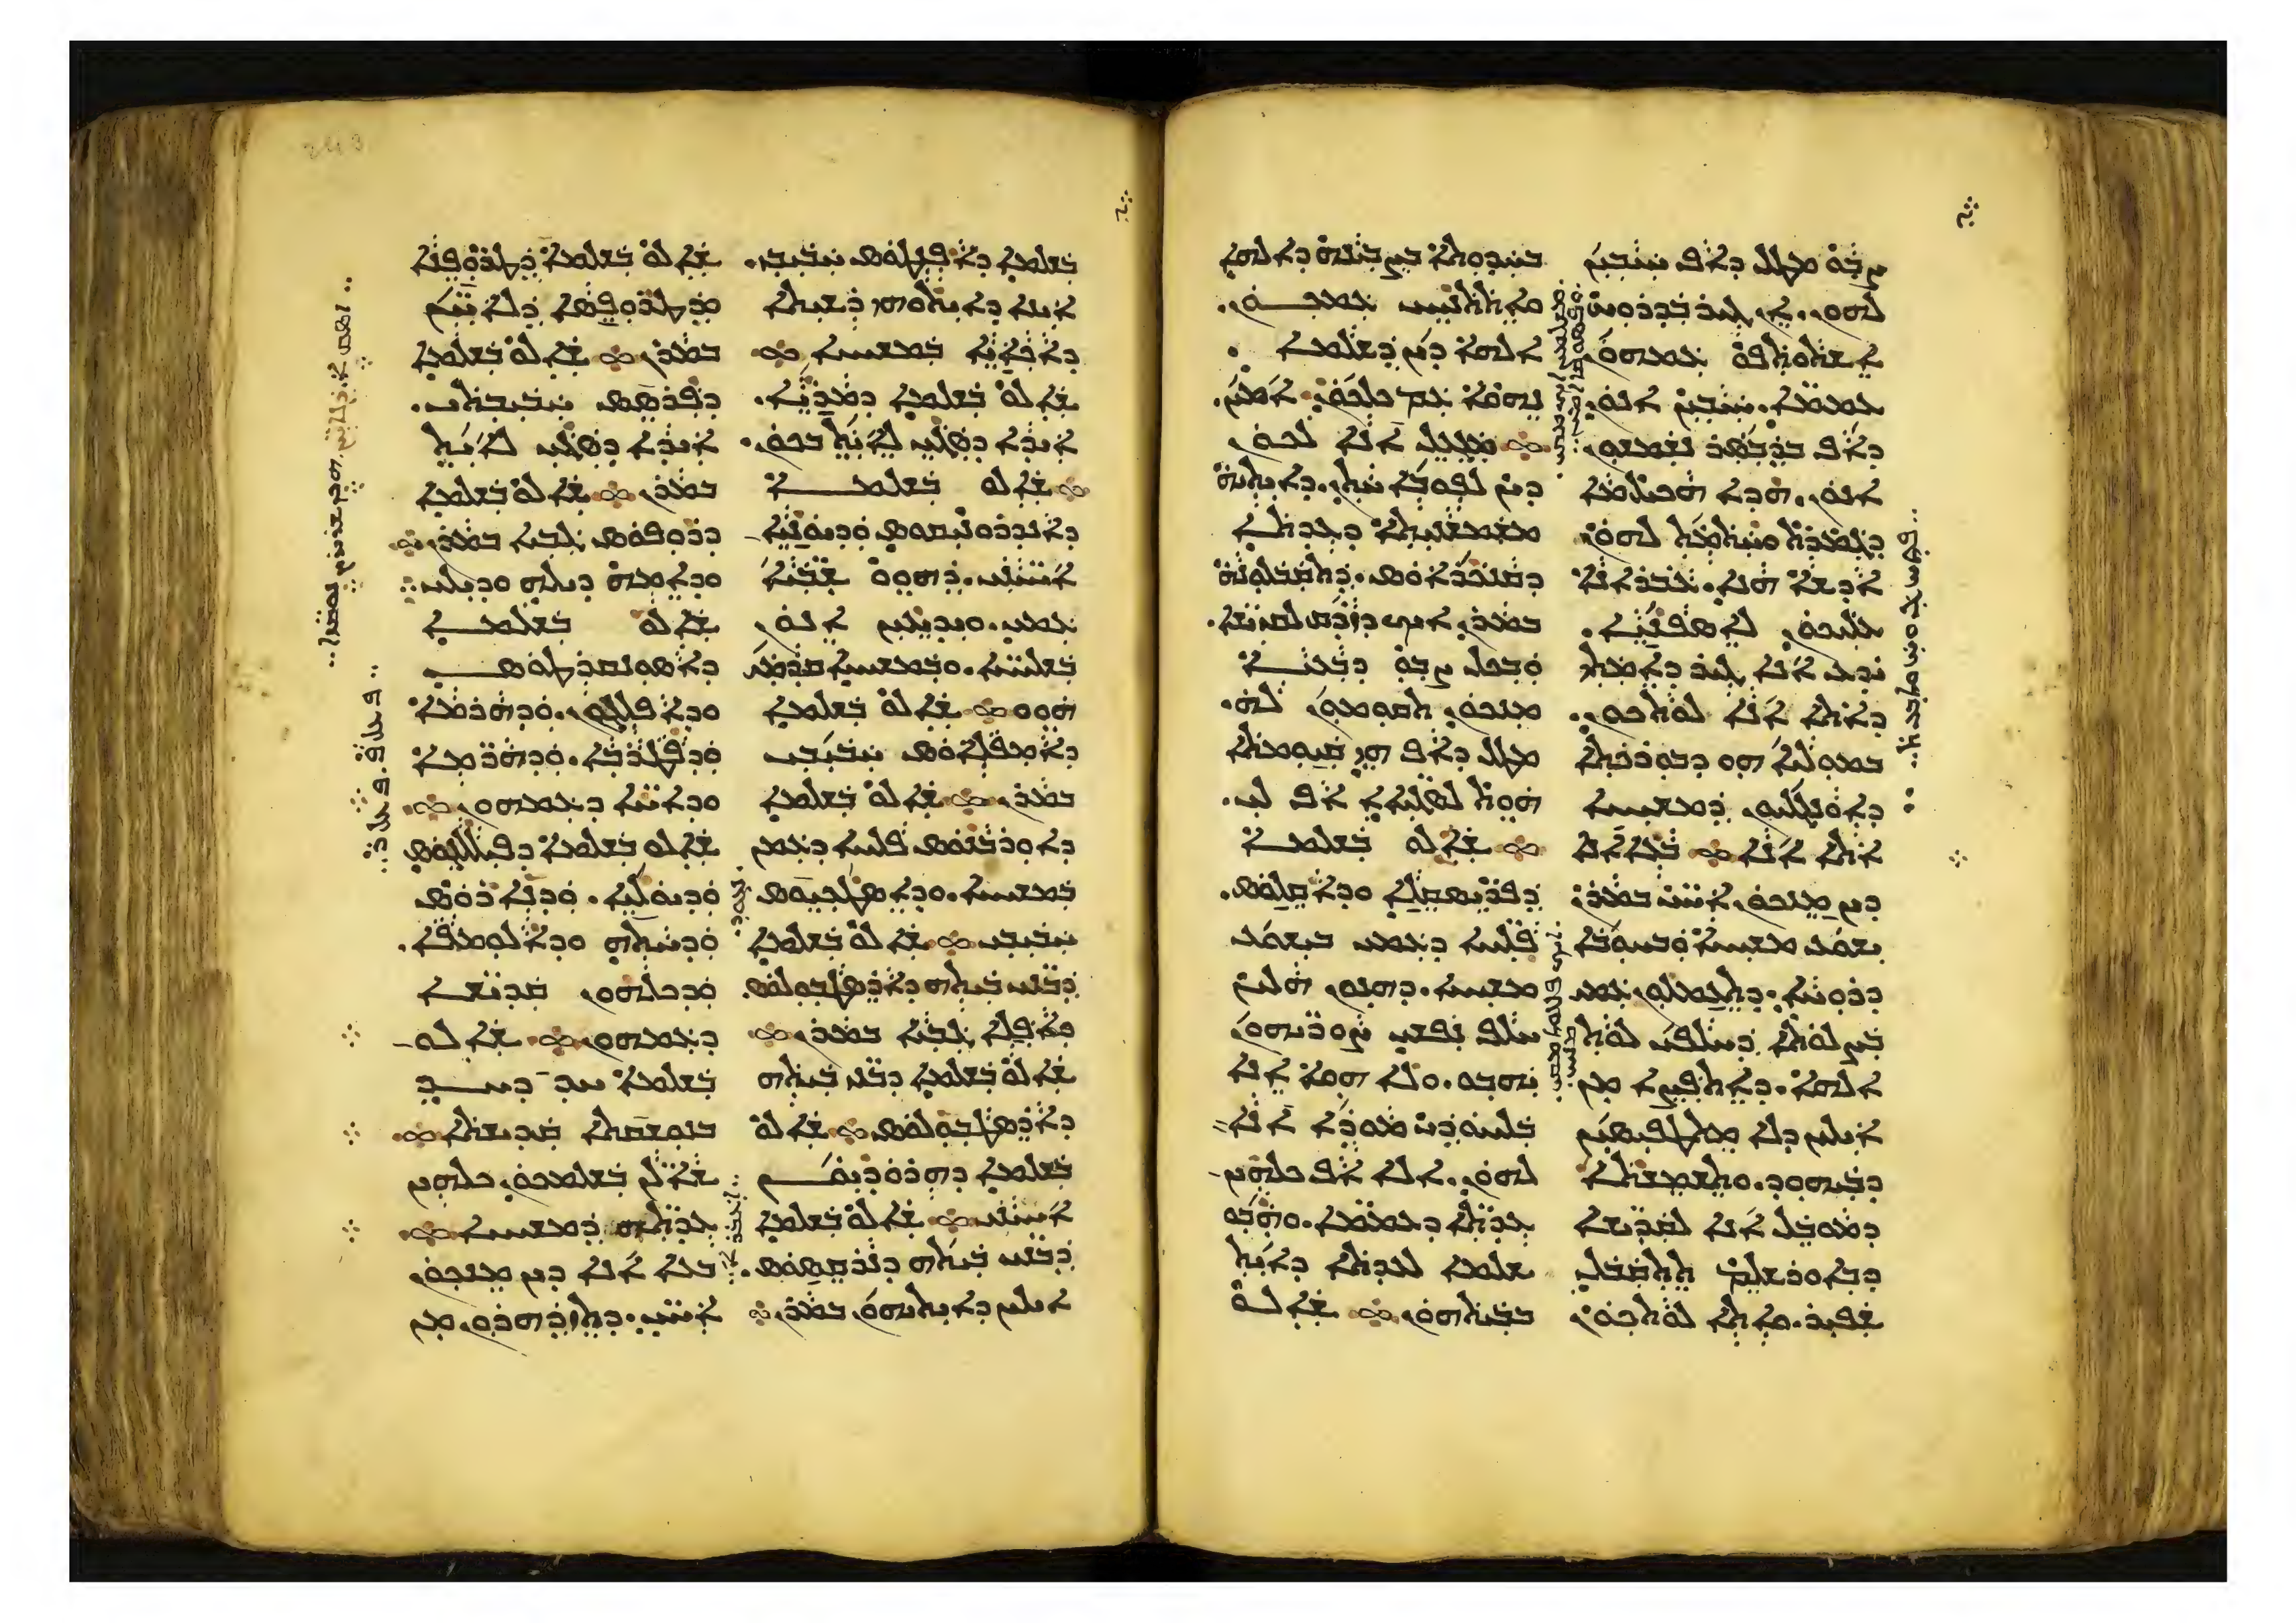 ܨܒܘ ܡܛܠ ܕܐܦ ܚܝܒܝܢ
ܠܗܘܢ. ܐܢ ܓܝܪ ܒܕܪܘܚ
ܐܫܬܘܬܦܘ ܥܡܗܘܢ
ܥܡܡܐ. ܚܝܒܝܢ ܐܢܘܢ
ܕܐܦ ܒܕܒܣܪ ܢܫܡܫܘܢ
ܐܢܘܢ. ܗܕܐ ܗܟܝܠ ܡܐ
ܕܓܡܪܬ ܘܚܬܡܬ ܠܗܘܢ
ܐܕܫܐ ܗܢܐ. ܥܒܪ ܐܢܐ
ܥܠܝܟܘܢ ܠܐܣܦܢܝܐ.
ܝܕܥ ܐܢܐ ܓܝܪ ܕܐܡܬܝ
ܕܐܬܐ ܐܢܐ ܠܘܬܟܘܢ.
ܒܡܘܠܝܐ ܗܘ ܕܒܘܪܟܬܐ
ܕܐܘܢܓܠܝܘܢ ܕܡܫܝܚܐ
ܐܬܐ ܐܢܐ ܀ ܒܥܐ ܐܢܐ
ܕܝܢ ܡܢܟܘܢ ܐܚܝ ܒܡܪܢ
ܝܫܘܥ ܡܫܝܚܐ ܘܒܚܘܒܐ
ܕܪܘܚܐ. ܕܬܥܡܠܘܢ ܥܡܝ
ܒܨܠܘܬܐ ܕܚܠܦܝ ܠܘܬ
ܐܠܗܐ. ܕܐܬܦܨܐ ܡܢ
ܐܝܠܝܢ ܕܠܐ ܡܬܛܦܝܣܝܢ
ܕܒܝܗܘܕ. ܘܬܫܡܫܬܐ
ܕܡܘܒܠ ܐܢܐ ܠܩܕܝܫܐ
ܕܒܐܘܪܫܠܡ ܬܬܩܒܠ
ܫܦܝܪ. ܘܐܬܐ ܠܘܬܟܘܢ
ܒܚܕܘܬܐ ܒܨܒܝܢܗ ܕܐܠܗܐ
ܘܐܬܬܢܝܚ ܥܡܟܘܢ.
ܐܠܗܐ ܕܝܢ ܕܫܠܡܐ
ܢܗܘܐ ܥܡ ܟܠܟܘܢ ܐܡܝܢ.
܀ ܡܓܥܠ ܐܢܐ ܠܟܘܢ
ܕܝܢ ܠܦܘܒܐ ܚܬܢ. ܕܐܝܬܝܗ
ܡܫܡܫܢܝܬܐ ܕܥܕܬܐ
ܕܩܢܟܪܐܘܣ. ܕܬܩܒܠܘܢܗ
ܒܡܪܢ ܐܝܟ ܕܙܕܩ ܠܩܕܝܫܐ.
ܘܒܟܠ ܨܒܘ ܕܒܥܝܐ
ܡܢܟܘܢ ܬܩܘܡܘܢ ܠܗ.
ܡܛܠ ܕܐܦ ܗܝ ܩܝܘܡܬܐ
ܗܘܬ ܠܣܓܝܐܐ ܐܦ ܠܝ.
܀ ܫܐܠܘ ܒܫܠܡܐ
ܕܦܪܝܣܩܠܐ ܘܕܐܩܠܘܣ.
ܦܠܚܐ ܕܥܡܝ ܒܝܫܘܥ
ܡܫܝܚܐ. ܕܗܢܘܢ ܗܠܝܢ
ܚܠܦ ܢܦܫܝ ܨܘܪܝܗܘܢ
ܝܗܒܘ. ܘܠܐ ܗܘܐ ܐܢܐ
ܒܠܚܘܕܝ ܡܘܕܐ ܐܢܐ
ܠܗܘܢ. ܐܠܐ ܐܦ ܟܠܗܝܢ
ܥܕܬܐ ܕܥܡܡܐ. ܘܗܒܘ
ܫܠܡܐ ܠܥܕܬܐ ܕܐܝܬ
ܒܒܝܬܗܘܢ ܀ ܫܐܠܘ
ܒܫܠܡܐ ܕܐܦܢܛܘܣ ܚܒܝܒܝ.
ܐܝܢܐ ܕܐܝܬܘܗܝ ܪܫܝܬܐ
ܕܐܟܐܝܐ ܒܡܫܝܚܐ ܀
ܫܐܠܘ ܒܫܠܡܐ ܕܡܪܝܐ.
ܐܝܕܐ ܕܣܓܝ ܠܐܝܬ ܒܟܘܢ.
܀ ܫܐܠܘ ܒܫܠܡܐ
ܕܐܢܕܪܘܢܝܩܘܣ ܘܕܝܘܢܝܐ
ܐܚܝܢܝ. ܕܗܘܘ ܫܒܝܐ
ܥܡܝ. ܘܝܕܝܥܝܢ ܐܢܘܢ
ܒܫܠܝܚܐ. ܘܒܡܫܝܚܐ ܩܕܡܝ
ܗܘܘ ܀ ܫܐܠܘ ܒܫܠܡܐ
ܕܐܡܦܠܝܘܣ ܚܒܝܒܝ
ܒܡܪܢ ܀ ܫܐܠܘ ܒܫܠܡܐ
ܕܐܘܪܒܢܘܣ ܦܠܚܐ ܕܥܡܢ
ܒܡܫܝܚܐ. ܘܕܐܣܛܟܘܣ
ܚܒܝܒܝ ܀ ܫܐܠܘ ܒܫܠܡܐ
ܕܒܢܝ ܒܝܬܗ ܕܐܪܣܛܒܘܠܘܣ
ܕܐܦܠܐ ܓܒܝܐ ܒܡܪܢ ܀
ܫܐܠܘ ܒܫܠܡܐ ܕܒܢܝ ܒܝܬܗ
ܕܐܪܣܛܒܘܠܘܣ ܀ ܫܐܠܘ
ܒܫܠܡܐ ܕܗܪܘܕܝܘܢ
ܐܚܝܢܝ ܀ ܫܐܠܘ ܒܫܠܡܐ
ܕܒܢܝ ܒܝܬܗ ܕܢܪܩܣܘܣ.
ܐܝܠܝܢ ܕܐܝܬܝܗܘܢ ܒܡܪܢ ܀
ܫܐܠܘ ܒܫܠܡܐ ܕܛܪܘܦܢܐ
ܘܕܛܪܘܦܣܐ ܕܠܐܝܢ
ܒܡܪܢ ܀ ܫܐܠܘ ܒܫܠܡܐ
ܕܦܪܣܝܣ ܚܒܝܒܬܝ.
ܐܝܕܐ ܕܣܓܝ ܠܐܝܬ
ܒܡܪܢ ܀ ܫܐܠܘ ܒܫܠܡܐ
ܕܪܘܦܘܣ ܓܒܝܐ ܒܡܪܢ ܀
ܘܕܐܡܗ ܕܝܠܗ ܘܕܝܠܝ ܀
ܫܐܠܘ ܒܫܠܡܐ
ܕܐܣܘܢܩܪܛܘܣ
ܘܕܐܦܠܓܘܢ. ܘܕܗܪܡܐ
ܘܕܦܛܪܒܐ. ܘܕܗܪܡܐ
ܘܕܐܚܐ ܕܥܡܗܘܢ ܀
ܫܐܠܘ ܒܫܠܡܐ ܕܦܝܠܠܓܘܣ
ܘܕܝܘܠܝܐ. ܘܕܢܐܪܘܣ
ܘܕܚܬܗ ܘܕܐܠܘܡܦܐ.
ܘܕܟܠܗܘܢ ܩܕܝܫܐ
ܕܥܡܗܘܢ ܀ ܫܐܠܘ
ܒܫܠܡܐ ܚܕ ܕܚܕ
ܒܢܘܫܩܬܐ ܩܕܝܫܬܐ ܀
ܫܐܠܢ ܒܫܠܡܟܘܢ ܟܠܗܝܢ
ܥܕܬܗ ܕܡܫܝܚܐ ܀
ܒܥܐ ܐܢܐ ܕܝܢ ܡܢܟܘܢ
ܐܚܝ. ܕܬܙܕܗܪܘܢ ܡܢ